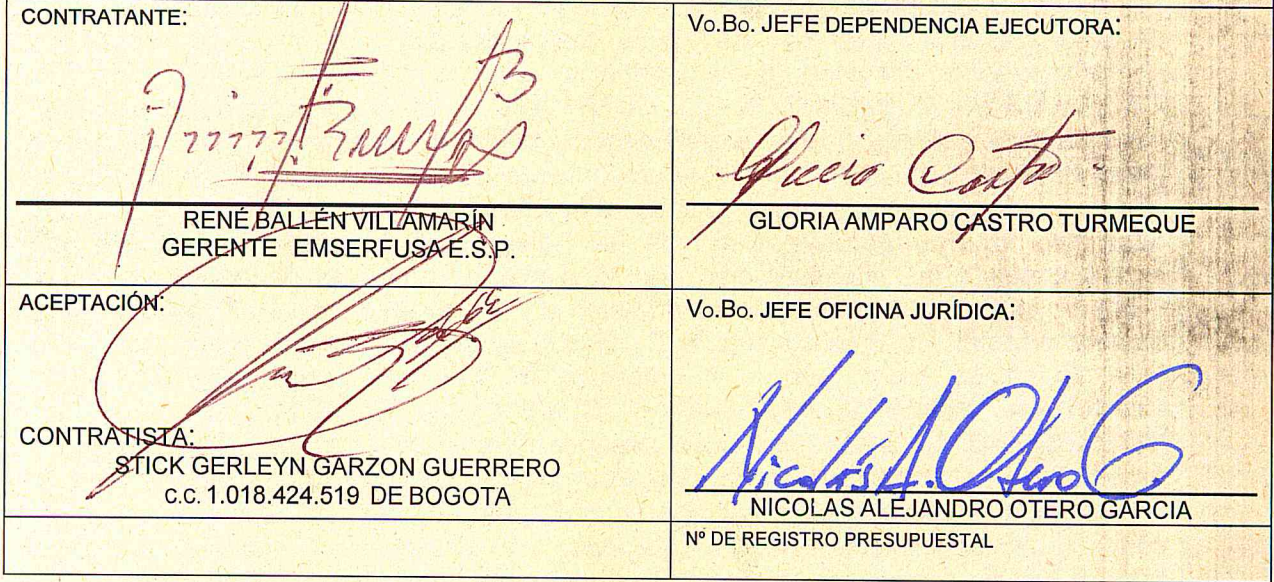 CONTRATANTE:
RENÉ BALLÉN VILLAMARÍN
GERENTE EMSERFUSA E.S.P.
Vo.Bo. JEFE DEPENDENCIA EJECUTORA:
GLORIA AMPARO CASTRO TURMEQUE
ACEPTACIÓN:
CONTRATISTA:
STICK GERLEYN GARZON GUERRERO
C.C. 1.018.424.519 DE BOGOTA
Vo.Bo. JEFE OFICINA JURÍDICA:
Nicolás A. Otero G.
NICOLAS ALEJANDRO OTERO GARCIA
Nº DE REGISTRO PRESUPUESTAL